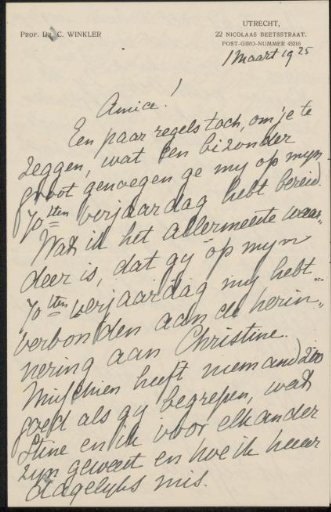 PROF. DR. C. WINKLER
UTRECHT,
22 NICOLAAS BEETSSTRAAT.
POST-GIRO-NUMMER 45216
1 Maart 1925
Amice!
Een paar regels toch, om je te
zeggen, wat een bizonder
groot genoegen ge my op myn
70sten verjaardag hebt bereid.
Wat ik het allermeeste waar-
deer is, dat gy op myn
70sten verjaardag my hebt
verbonden aan de herin-
nering aan Christine.
Misschien heeft niemand zoo
goed als gy begrepen, wat
Stine en ik voor elkander
zyn geweest en hoe ik haar
dagelyks mis.